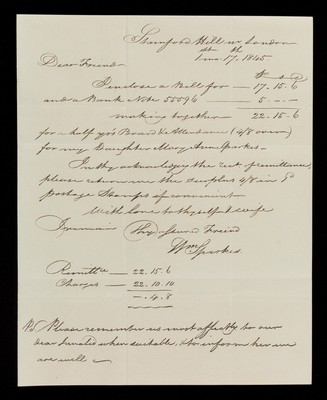 Stamford Hill nr London
1st mo. 17th 1845
£ s d
Dear Friend
I enclose a Bill for — 17.15.6
and a Bank Note 55096 — 5.—.—
making together — 22.15.6
for ½ yrs Board & Attendance (4/8 over)
for my Daughter Mary Ann Sparkes —
In thy acknowledging the rect of remittance
please return me the surplus 4/8 in 1d
Postage Stamps if convenient
With love to thyself & wife
I remain Thy Friend
Wm Sparkes
Remittce — 22.15.6
Charges — 22.10.10
— .4.8
PS Please remember us most affectly to our
dear when suitable, & to inform her we
are well —